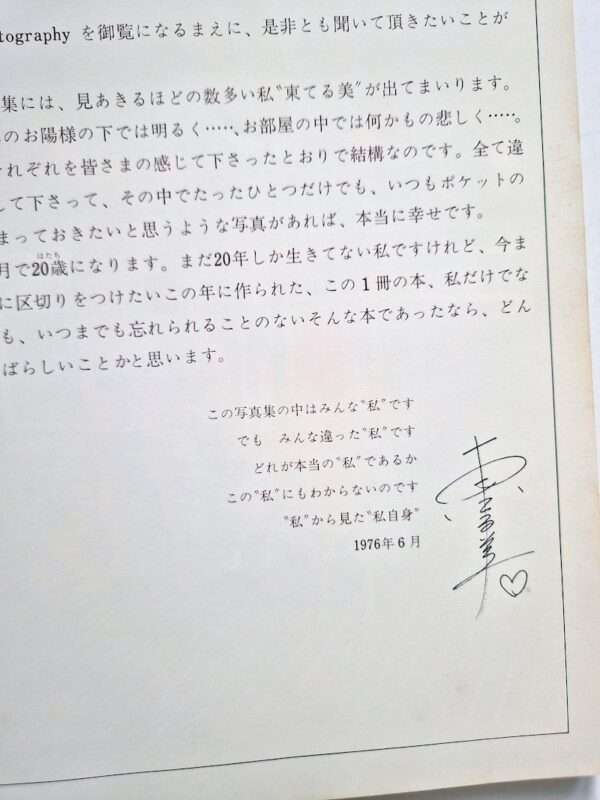 tography を御覧になるまえに、是非とも聞いて頂きたいことが
集には、見あきるほどの数多い私〝東てる美〟が出てまいります。
のお陽様の下では明るく……、お部屋の中では何かもの悲しく……。
れぞれを皆さまの感じて下さったとおりで結構なのです。全て違
して下さって、その中でたったひとつだけでも、いつもポケットの
まっておきたいと思うような写真があれば、本当に幸せです。
月で20歳になります。まだ20年しか生きてない私ですけれど、今ま
に区切りをつけたいこの年に作られた、この1冊の本、私だけでな
も、いつまでも忘れられることのないそんな本であったなら、どん
ばらしいことかと思います。
この写真集の中はみんな〝私〟です
でも　みんな違った〝私〟です
どれが本当の〝私〟であるか
この〝私〟にもわからないのです
〝私〟から見た〝私自身〟
1976年6月